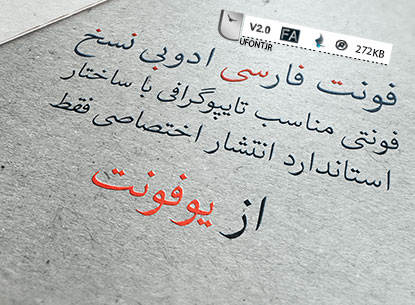 V2.0 FA ® 272KB
UFONT.IR
فونت فارسی ادوبی نسخ
فونتی مناسب تایپوگرافی با ساختار
استاندارد انتشار اختصاصی فقط
از یوفونت